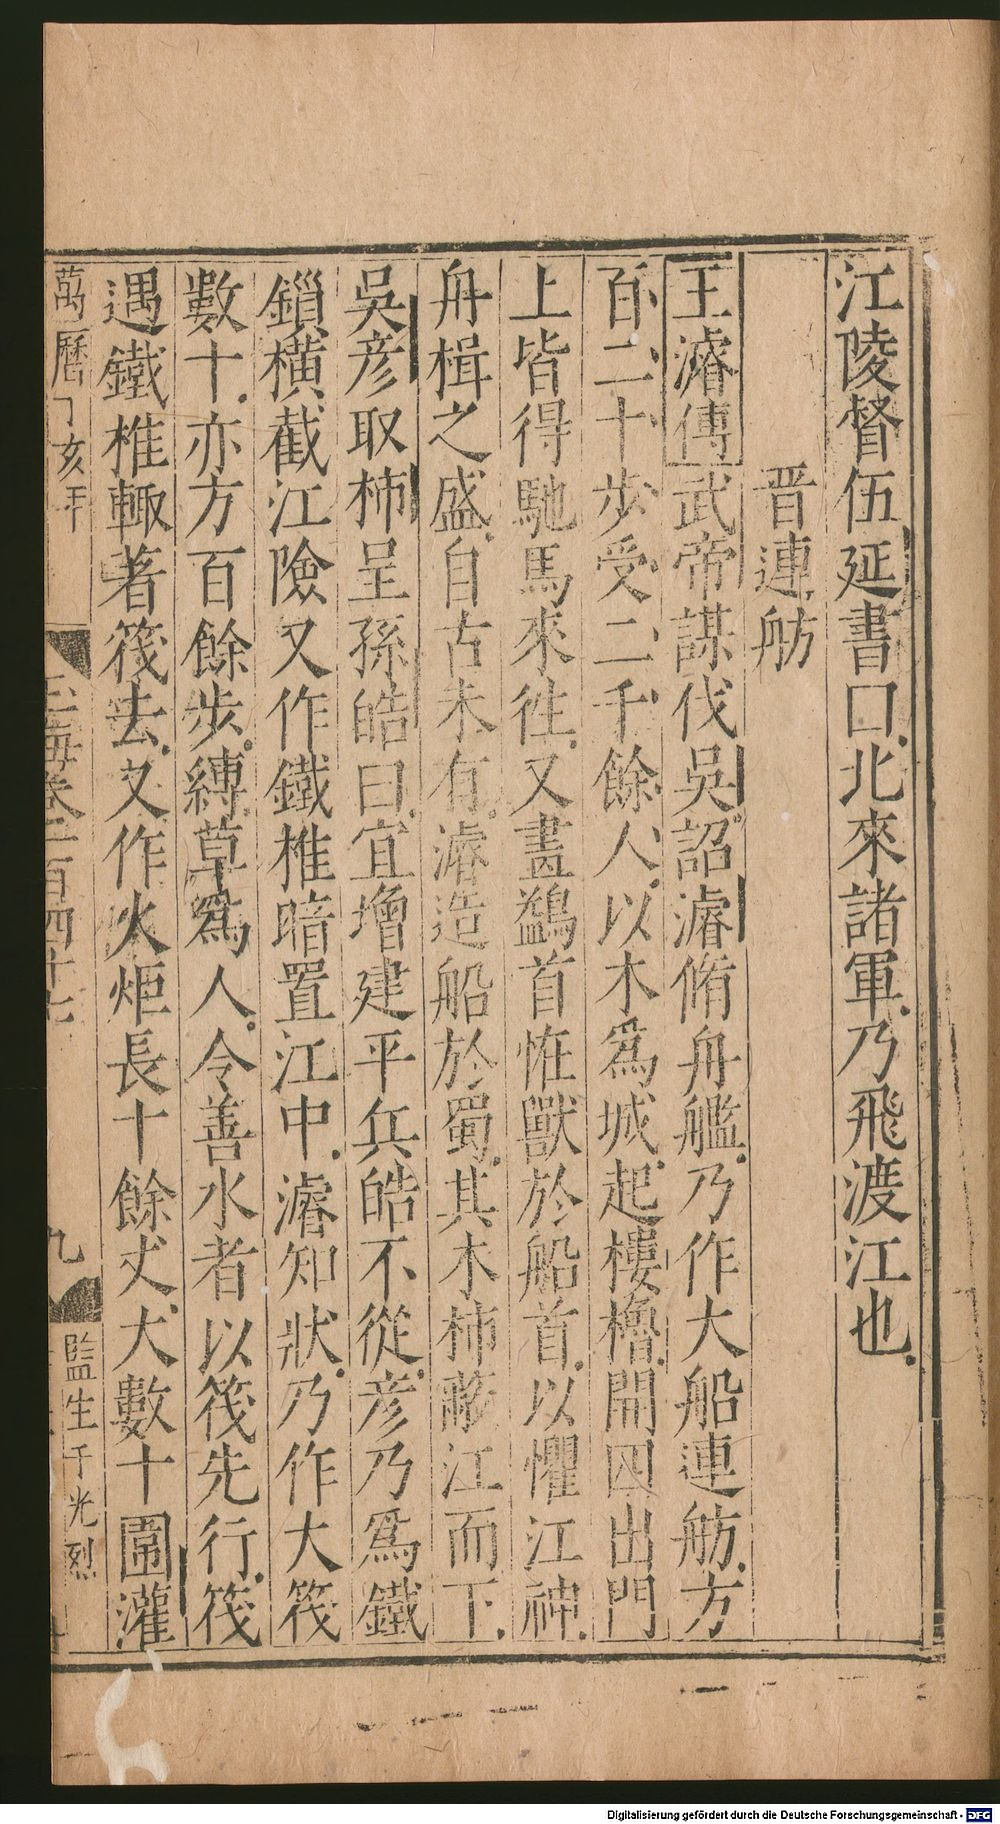 江陵督伍延書曰北來諸軍乃飛渡江也
晋連舫
王濬傳武帝謀伐吳詔濬脩舟艦乃作大船連舫方
百二十步受二千餘人以木爲城起樓櫓開四出門
上皆得馳馬來徃又畫鷁首恠獸於船首以懼江神
舟楫之盛自古未有濬造船於蜀其木柿蔽江而下
吳彦取柿呈孫皓曰宜增建平兵皓不從彦乃爲鐵
鎻橫截江險又作鐵椎暗置江中濬知狀乃作大筏
數十亦方百餘步縛草爲人令善水者以筏先行筏
遇鐵椎輙著筏去又作火炬長十餘丈大數十圍灌
萬曆丁亥年 玉海卷一百四十七 九 監生千光烈
Digitalisierung gefördert durch die Deutsche Forschungsgemeinschaft - DFG